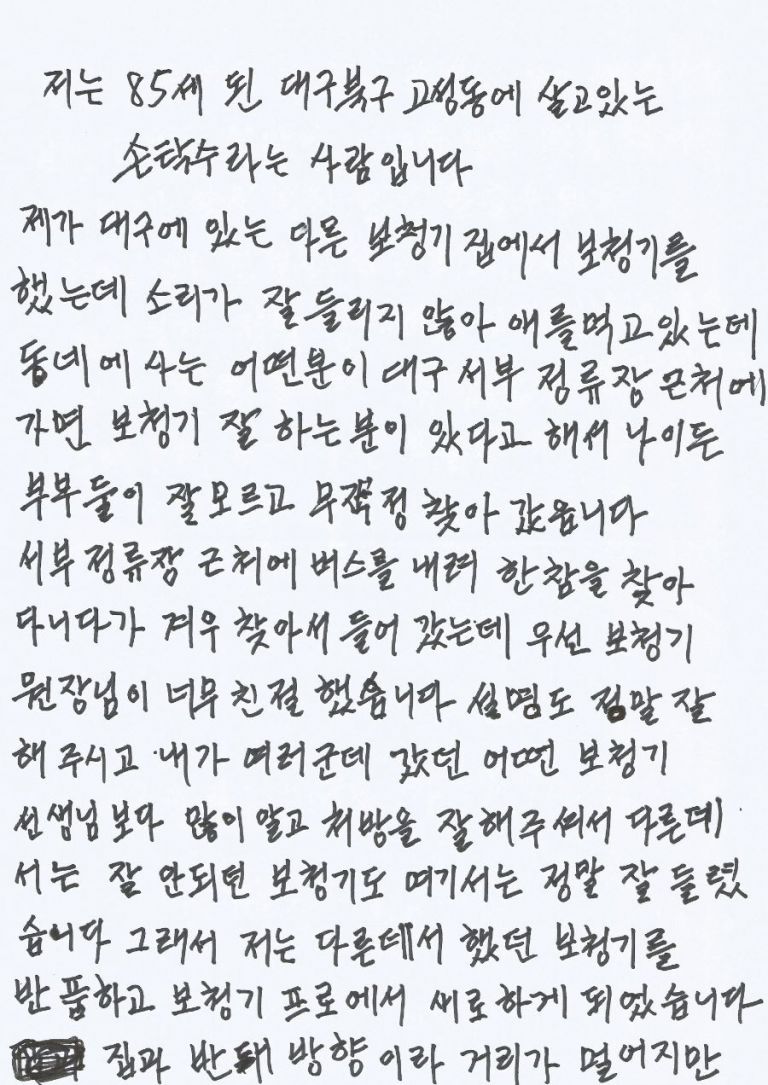 저는 85세 된 대구북구 고성동에 살고있는
손탁수라는 사람입니다
제가 대구에 있는 다른 보청기 집에서 보청기를
했는데 소리가 잘 들리지 않아 애를먹고있는데
동네에 사는 어떤분이 대구 서부 정류장 근처에
가면 보청기 잘 하는분이 있다고 해서 나이든
부부둘이 잘모르고 무작정 찾아 갔읍니다
서부정류장 근처에 버스를 내려 한참을 찾아
다니다가 겨우 찾아서 들어 갔는데 우선 보청기
원장님이 너무 친절 했습니다 설명도 정말 잘
해 주시고 내가 여러군데 갔던 어떤 보청기
선생님보다 많이알고 처방을 잘해주셔서 다른데
서는 잘 안되던 보청기도 여기서는 정말 잘 들렸
습니다 그래서 저는 다른데서 했던 보청기를
반품하고 보청기 프로에서 새로하게 되었습니다
집과 반대 방향이라 거리가 멀어지만